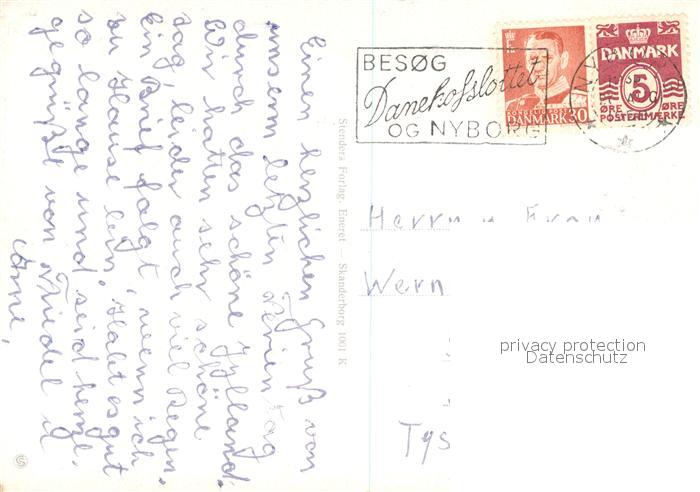 Einen herzlichen Gruß von
unserm letzten Ferientag
durch das schöne Jylland.
Wir hatten sehr schöne
Tag, leider auch viel Regen.
Ein Brief folgt, wenn ich
zu Hause bin. Habt es gut
so lange und seid herzl.
gegrüßt von Friedel u
Arne,
Stenders Forlag. Eneret — Skanderborg 1001 K
BESØG
Danehofslottet
OG NYBORG
DANMARK 30
DANMARK
5
ØRE ØRE
POSTFRIMÆRKE
Herrn u Frau
Wern
Tys
privacy protection
Datenschutz